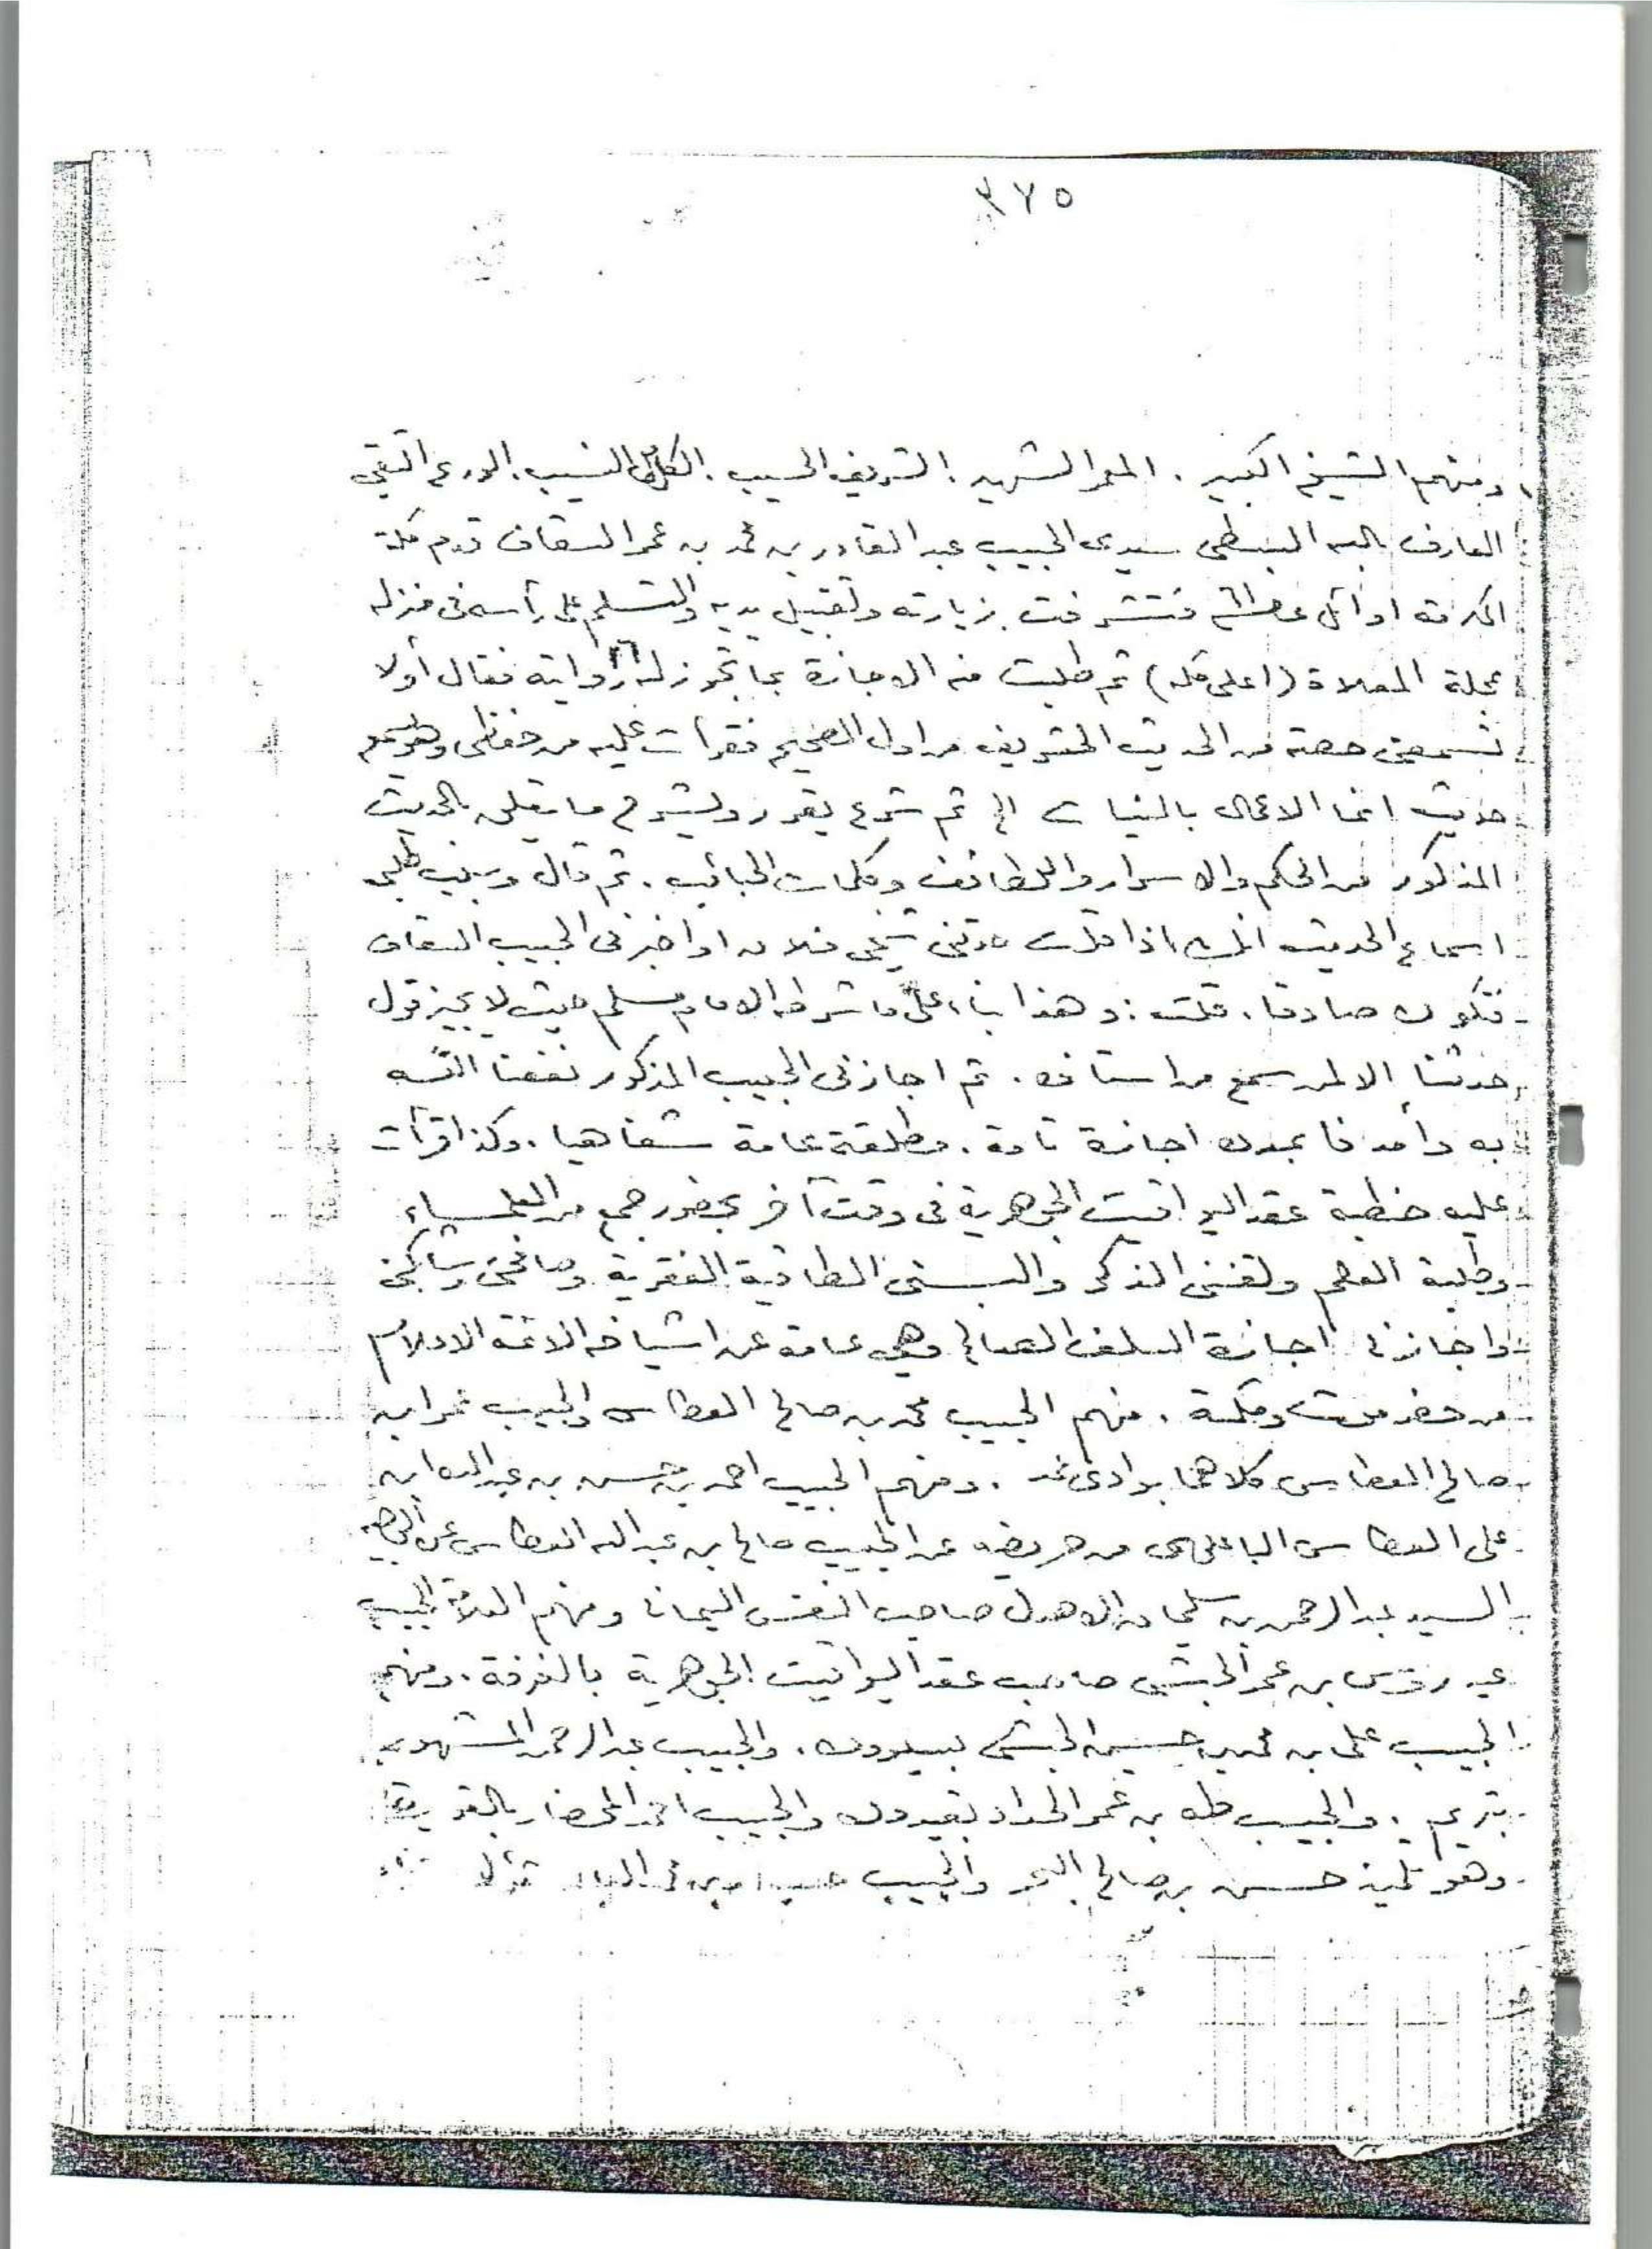 ٣٧٥
ومنهم الشيخ الكبير . المعمر الشهير . الشريف الحسيب . النسيب . الورع التقي
العارف بالله سيدى الحبيب عبد القادر بن محمد بن عمر السقاف قدم مكة
المكرمة اوائل فتشرفت بزيارته وتقبيل يديه والتسليم على رأسه فى منزله
بمحلة المعلاة (اعلى مكه) ثم طلبت منه الاجازة بما تجوز له روايته فقال أولا
تسمعنى حصة من الحديث الشريف من اول الصحيح فقرأت عليه من حفظى وهو يسمع
حديث انما الاعمال بالنيات الخ ثم شرع يقرر ويشرح ما يتعلق بالحديث
المذكور من الحكم والاسرار واللطائف وكلمات . ثم قال وسبب طلبى
اسماع الحديث انك اذا قلت حدثنى شيخى فلان او اخبرنى الحبيب السقاف
فتكون صادقا . قلت : وهذا بناء على ما شرطه الامام مسلم حيث لا يجيز قول
حدثنا الا لمن سمع من استاذه . ثم اجازنى الحبيب المذكور نفعنا الله
به وأمدنا بمدده اجازة تامة . مطلقة عامة شفاهيا . وكذا قرأت
عليه خطبة عقد اليواقيت الجوهرية فى وقت آخر بحضور جمع من العلماء
وطلبة العلم ولقننى الذكر والبسنى الطاقية الفقرية وصافحنى وشابكنى
واجازنى اجازة السلف الصالح وهى عامة عن اشياخه الائمة الاعلام
من حضرموت ومكة . منهم الحبيب محمد بن صالح العطاس والحبيب عمر ابن
صالح العطاس كلاهما بوادى عمد . ومنهم الحبيب احمد بن حسن بن عبد الله ابن
على العطاس الباعلوى من حريضه عن الحبيب صالح بن عبد الله العطاس عن
السيد عبد الرحمن بن سليمان الاهدل صاحب النفس اليمانى ومنهم العلامة الحبيب
عيدروس بن عمر الحبشى صاحب عقد اليواقيت الجوهرية بالغرفة . ومنهم
الحبيب على بن محمد بن حسين الحبشى بسيوون . والحبيب عبد الرحمن المشهور
بتريم . والحبيب طه بن عمر الحداد بقيدون والحبيب احمد المحضار بالقويرة
وهو تلميذ حسن بن صالح البحر والحبيب بن محمد